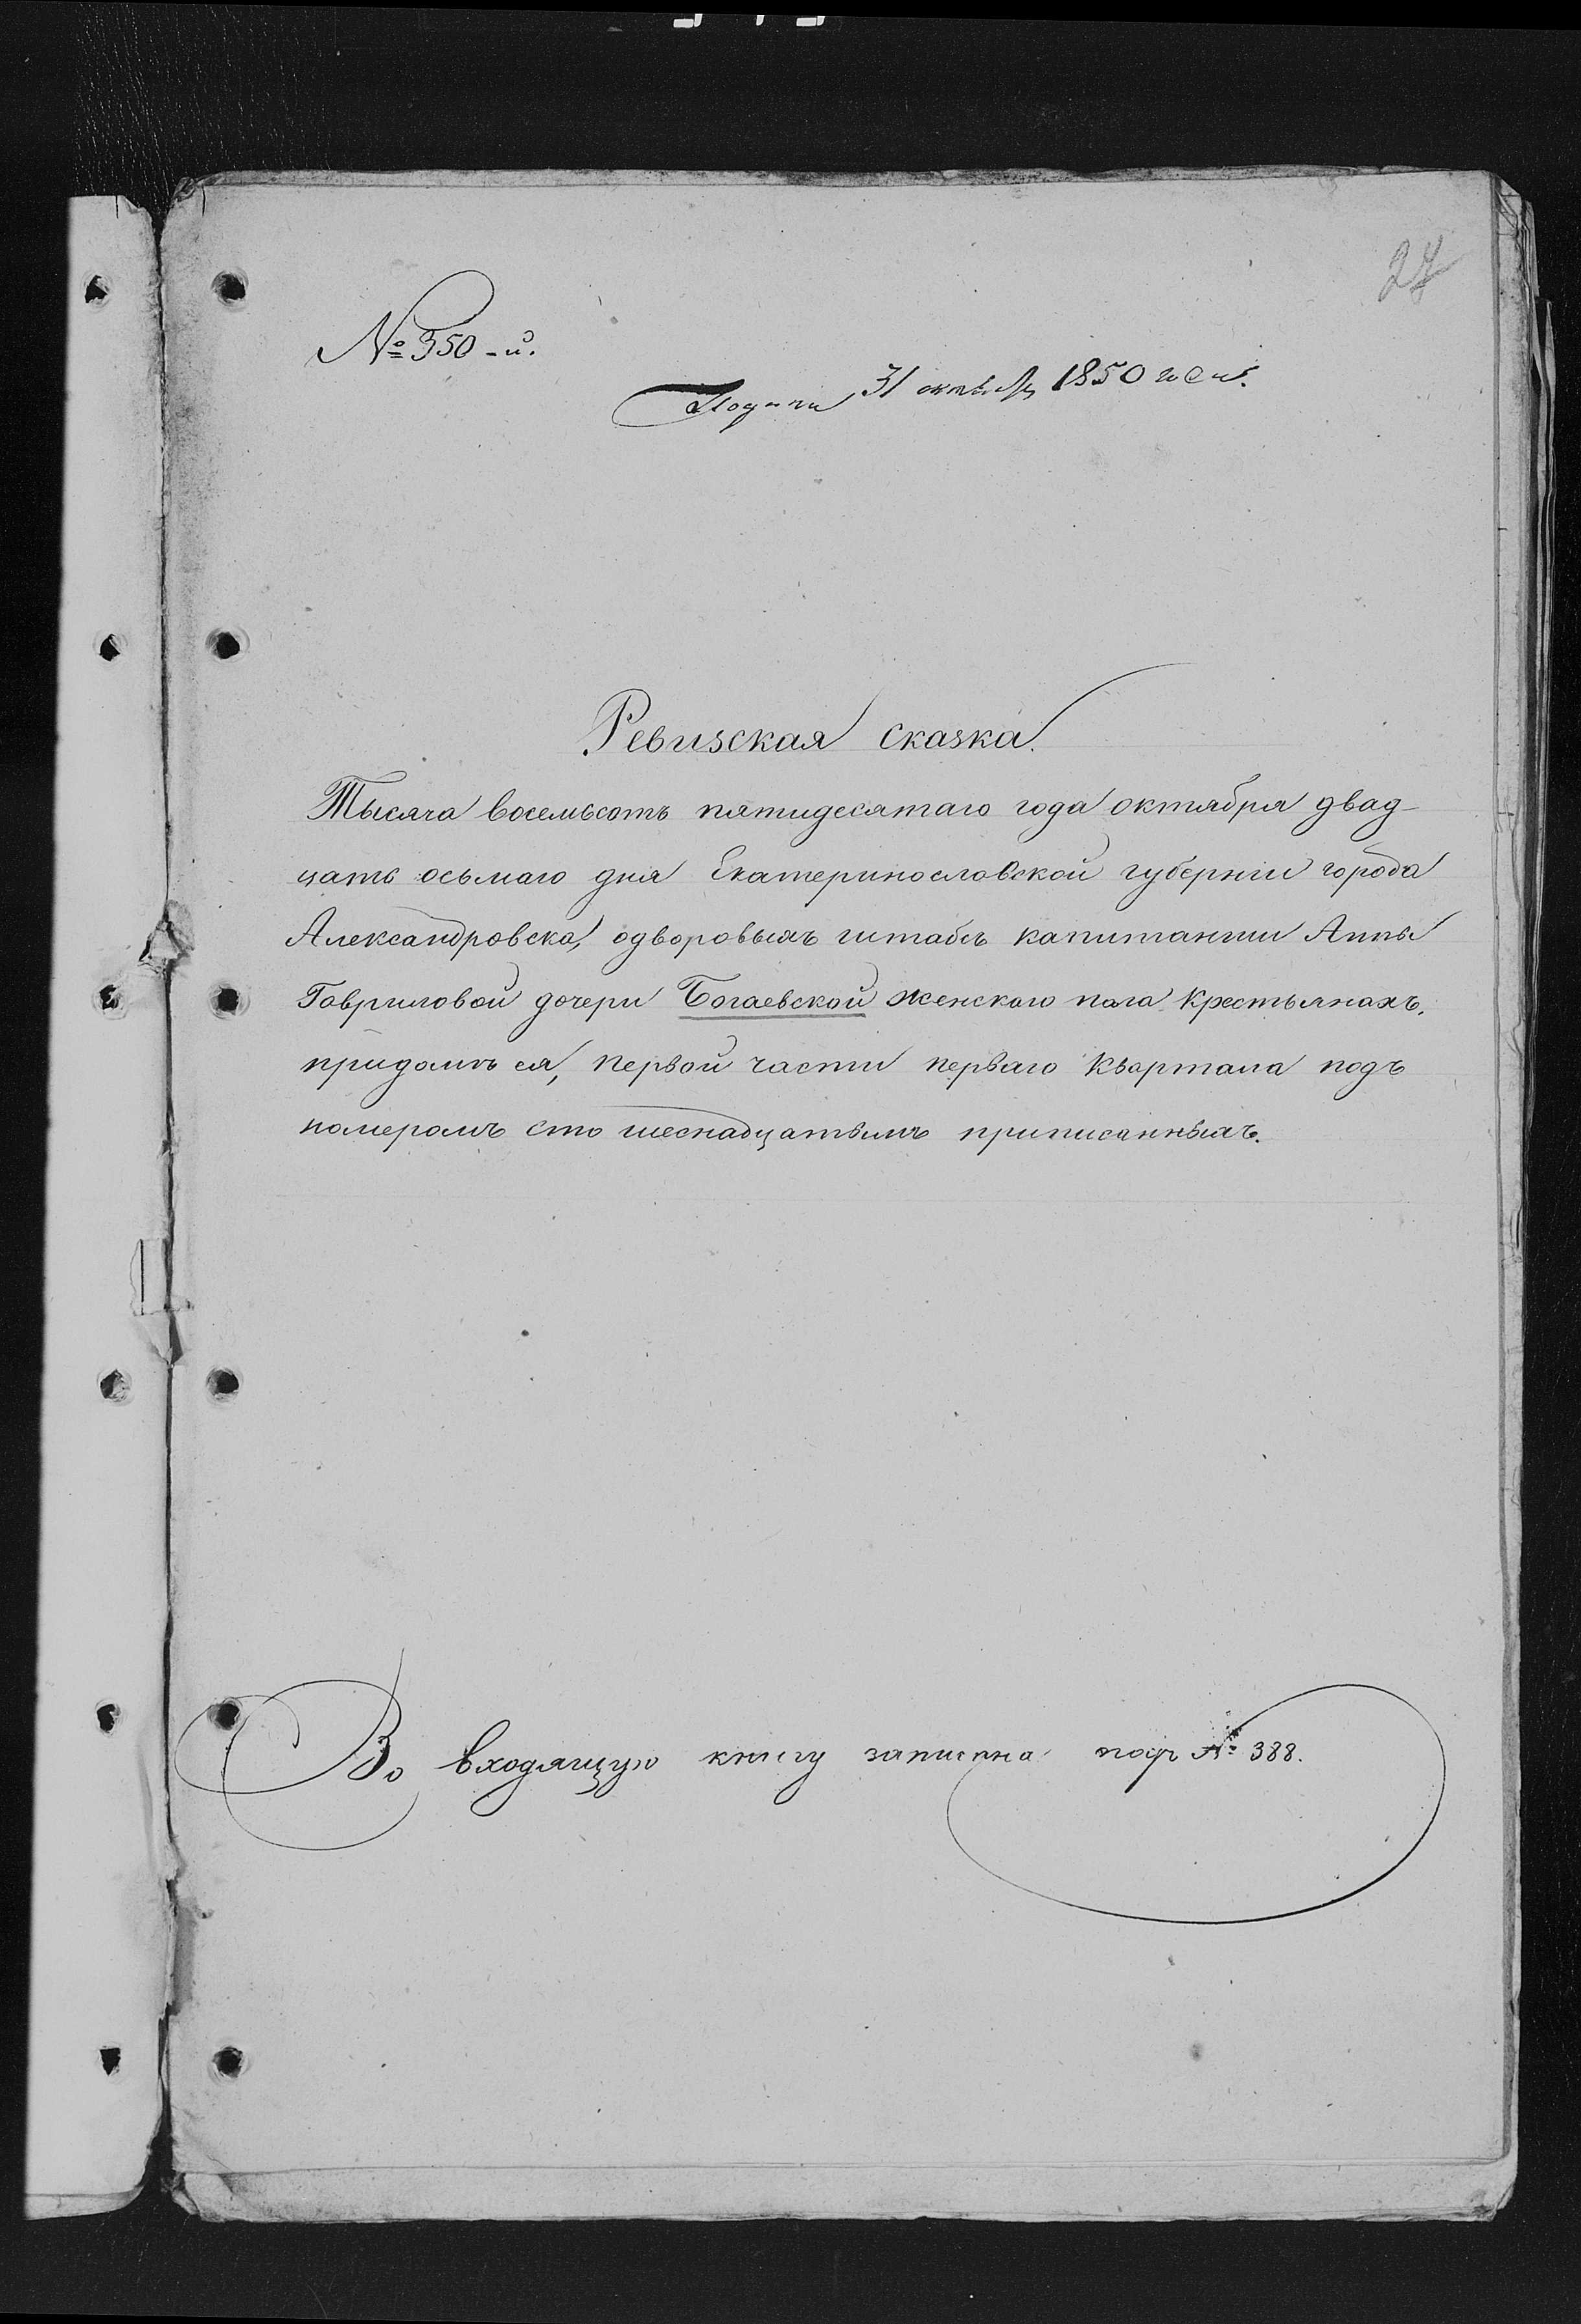 27
№ 350-й.
31 октября 1850 года.
Ревизская сказка.
Тысяча восемьсотъ пятидесятаго года октября двад-
цать осьмаго дня Екатеринославской губернiи города
Александровска, одворовыхъ штабсъ капитанши Анны
Гавриловой дочери Богаевской женскаго пола крестьянахъ,
придомъ ея, первой части перваго квартала подъ
номеромъ сто шеснадцатымъ приписанныхъ.
Во входящую книгу записана подъ № 388.